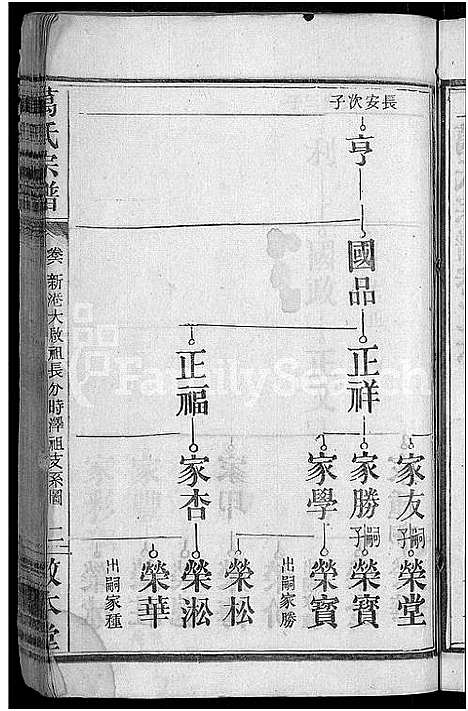 長安次子
亨
國品
正祥
正福
家友
家勝
家學
家杏
嗣子
榮堂
嗣子
榮寶
榮寶
出嗣家勝
榮松
榮淞
榮華
出嗣家種
萬氏宗譜
卷六 新港大啟祖長分時澤祖支系圖
敦本堂
FamilySearch